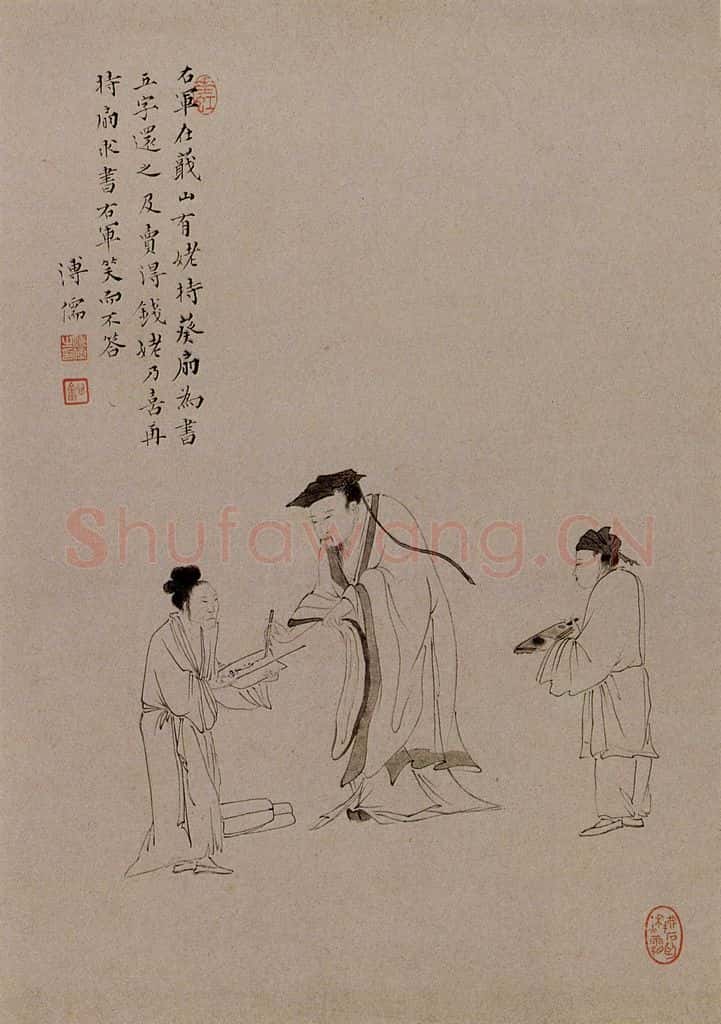 右軍在蕺山有姥持葵扇為書
五字還之及賣得錢姥乃喜再
持扇求書右軍笑而不答
溥儒
Shufawang.CN